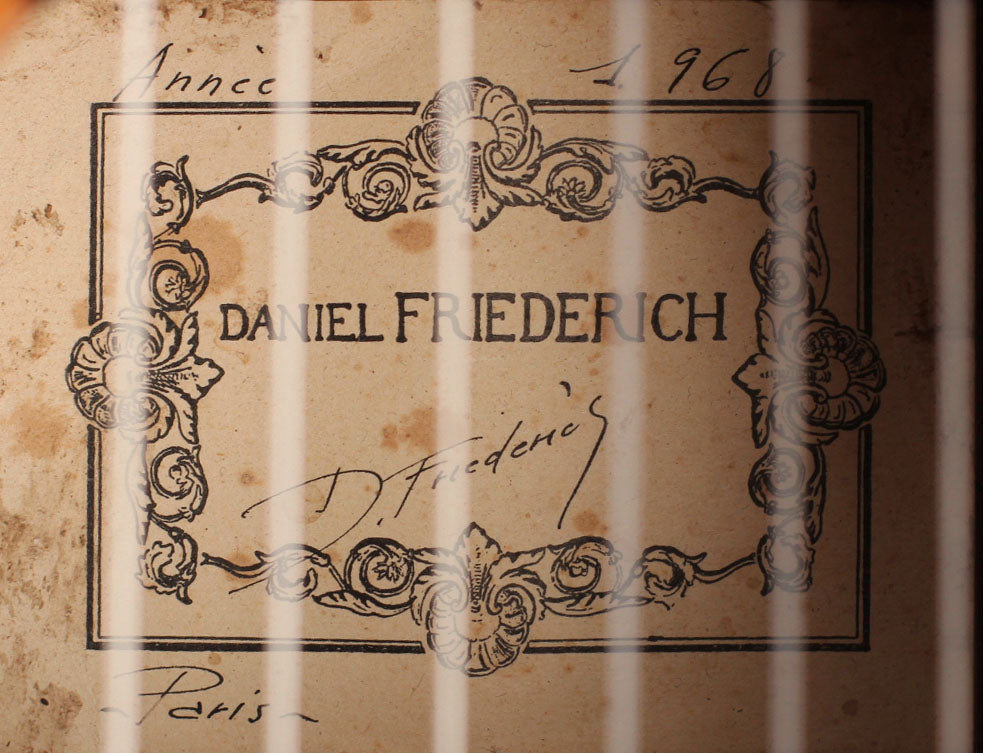 Année 1968
DANIEL FRIEDERICH
D. Friederich
Paris